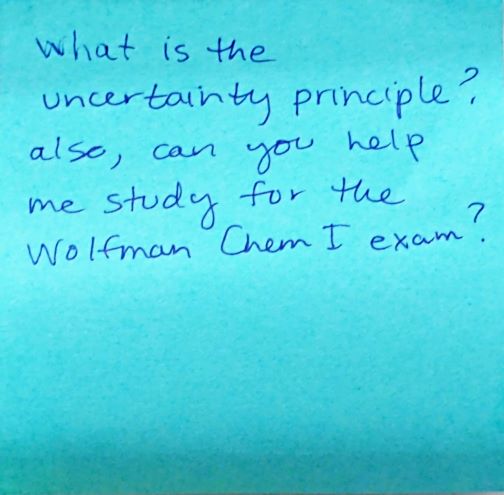 What is the
uncertainty principle?
also, can you help
me study for the
Wolfman Chem I exam?